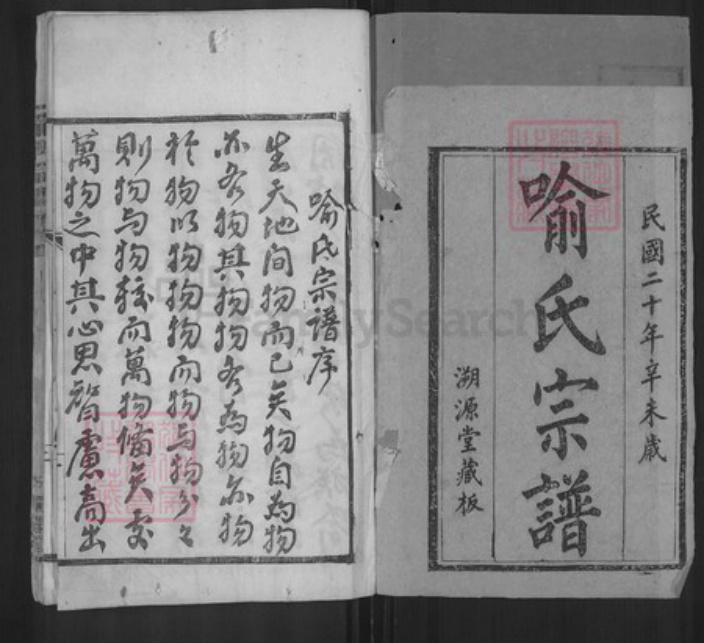 民國二十年辛未歲
喻氏宗譜
溯源堂藏板
喻氏宗譜序
生天地间物而已矣物自为物
亦各物其物物各為物亦物
於物以物物物而物与物分之
則物与物較而萬物備矣
萬物之中其心思智慮高出
FamilySearch